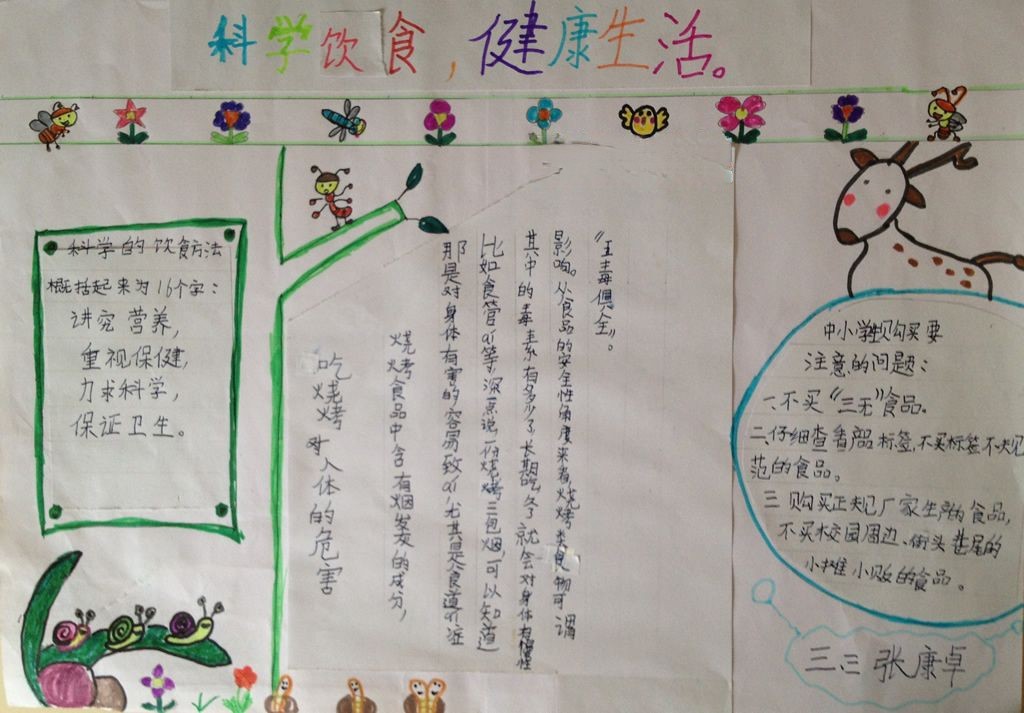 科学饮食，健康生活。
科学的饮食方法
概括起来为16个字：
讲究营养，
重视保健，
力求科学，
保证卫生。
吃烧烤对人体的危害
烧烤食品中含有烟发的成分，
那是对身体有害的容易致ai尤其是食道
比如食管ai等，深点说一份烧烤三包烟，可以知道
其中的毒素有多少了长期吃多了就会对身体有慢性
影响。从食品的安全性角度来看烧烤类食物可谓
“五毒俱全”。
中小学生购买要
注意的问题：
一、不买“三无”食品。
二、仔细查看商品标签，不买标签不规
范的食品。
三 购买正规厂家生产的食品，
不买校园周边、街头巷尾的
小摊小贩的食品。
三.三 张康卓